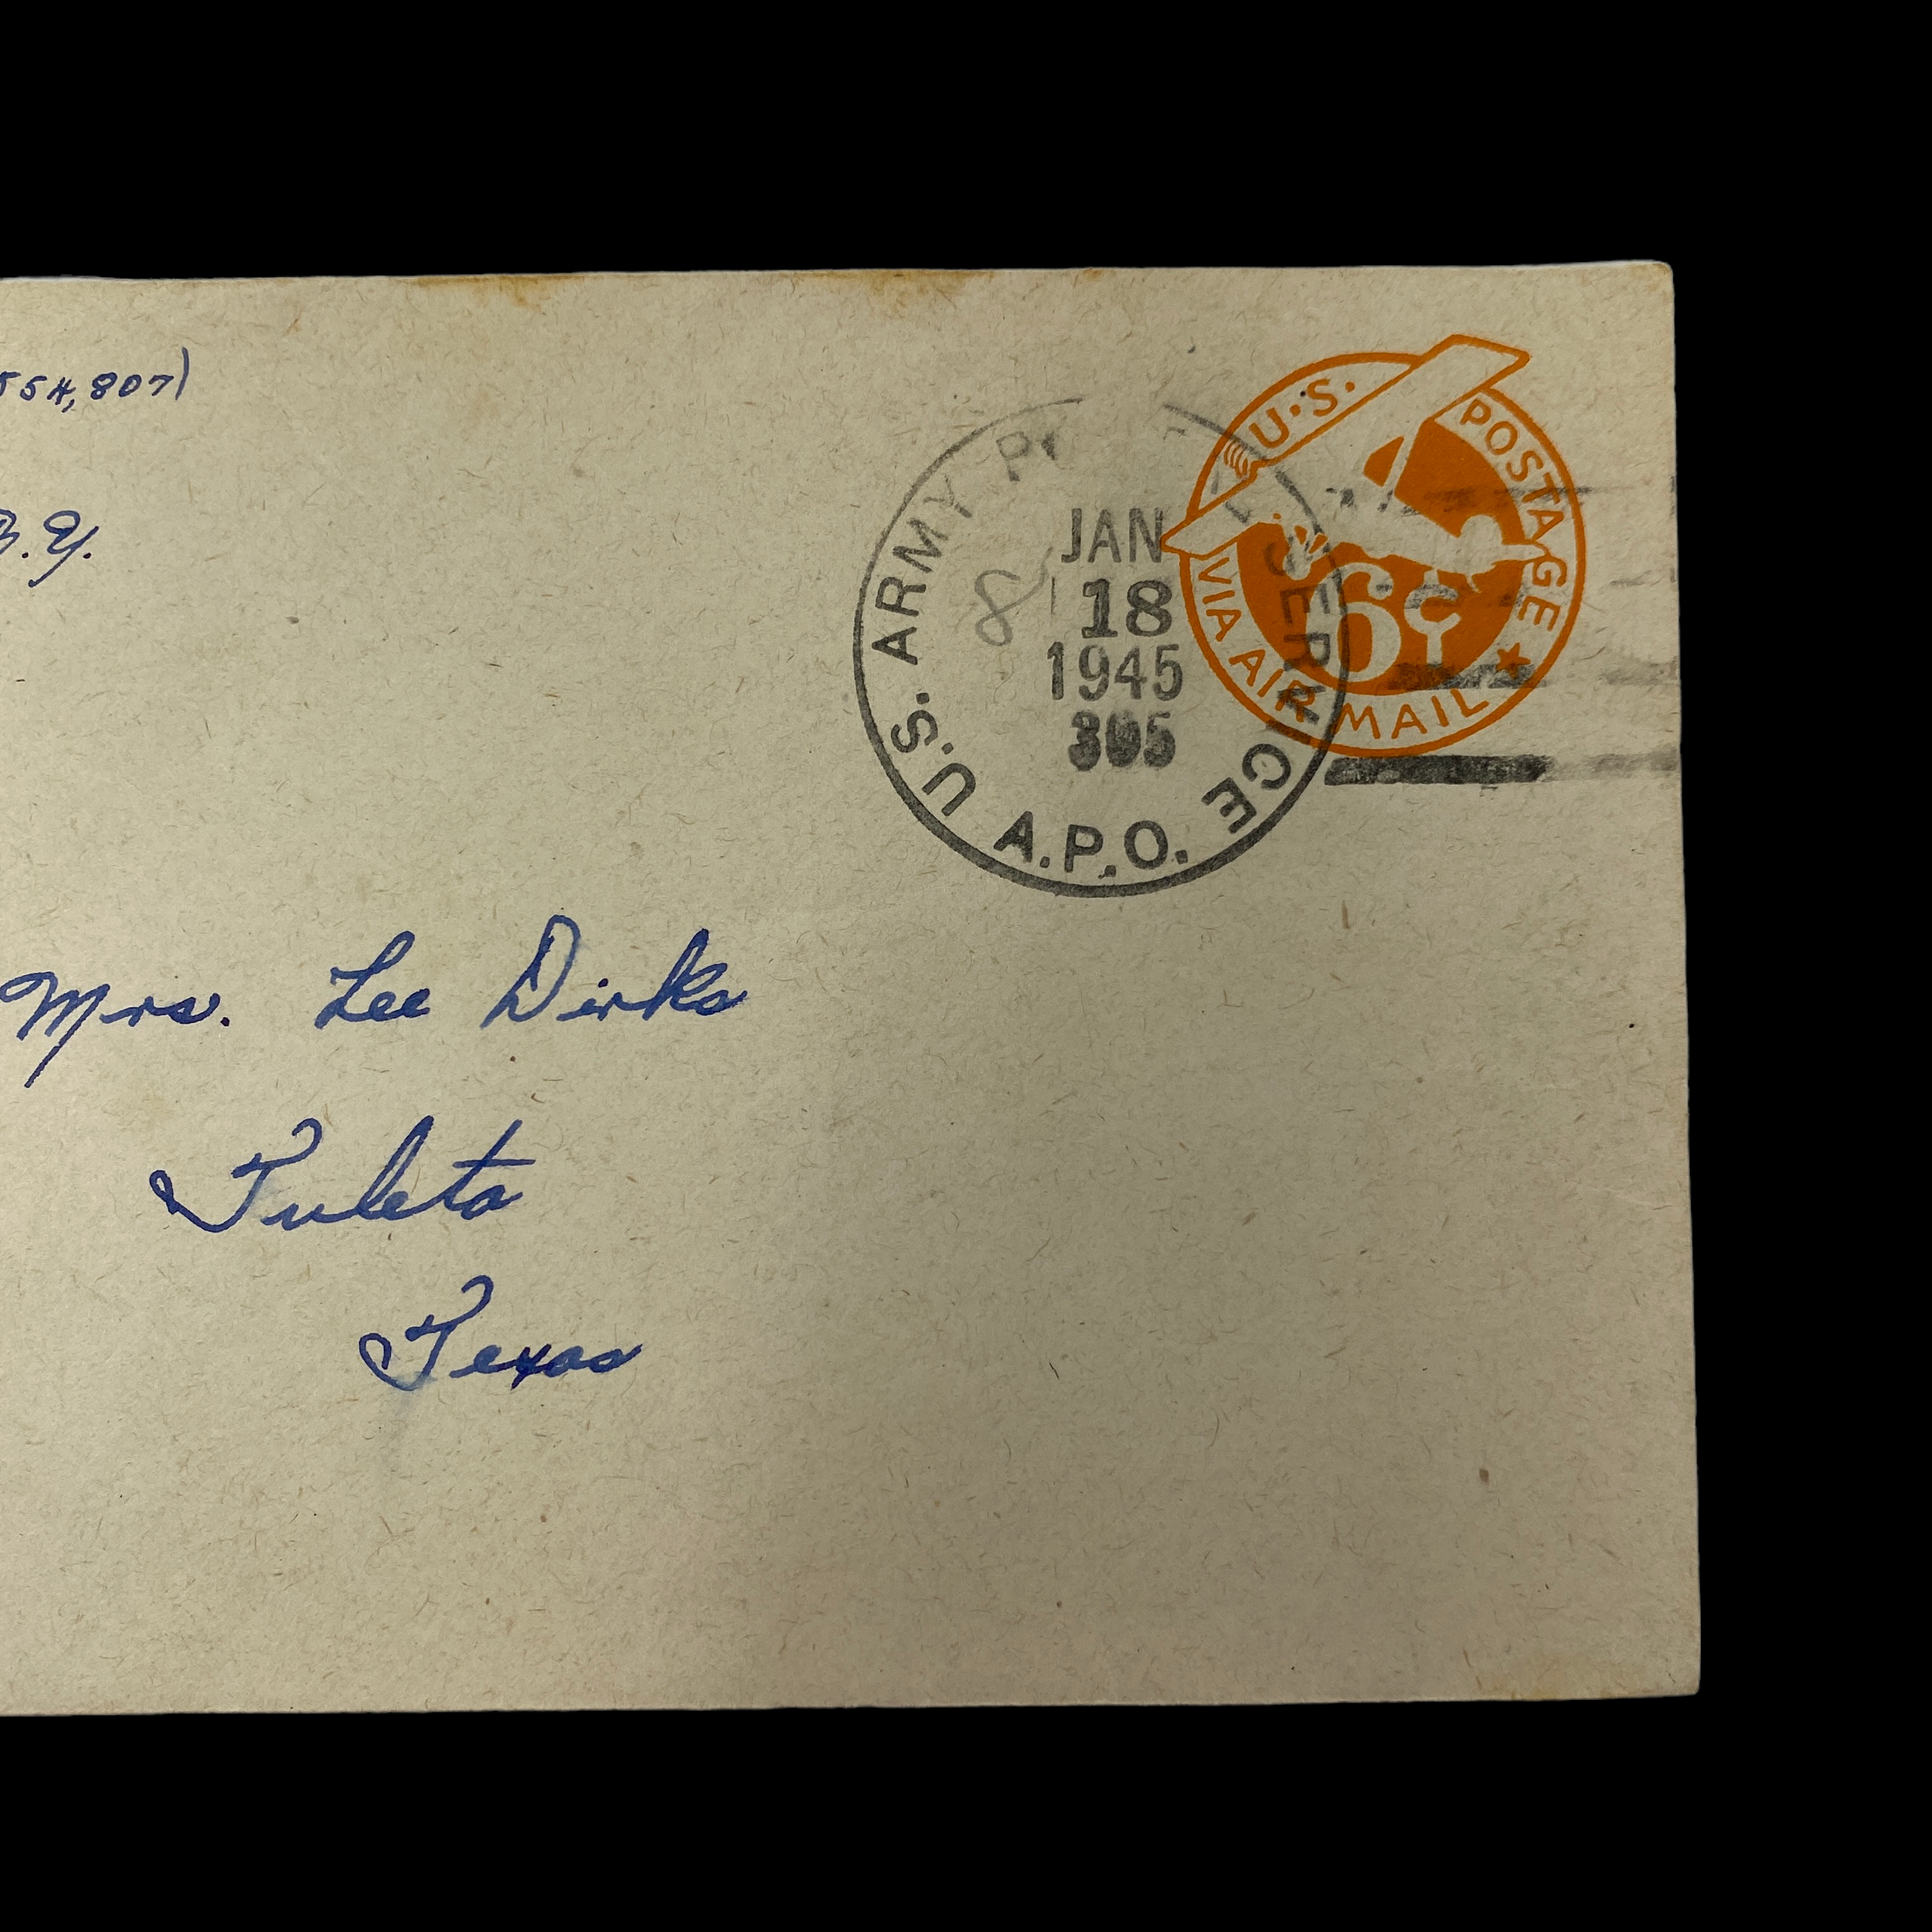 554,807)
U.S. POSTAGE
VIA AIR MAIL
6¢
U.S. ARMY SERVICE
A.P.O.
JAN
18
1945
8
.Y.
Mrs. Lee Dirks
Tuleta
Texas